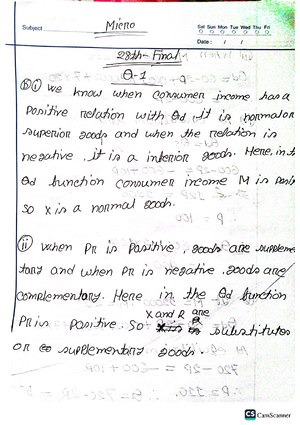 Subject
Micro
Sat Sun Mon Tue Wed Thu Fri
Date : / /
28th - Final
Q-1
(b) (i) We know when consumer income has a
positive relation with Qd, it is normal or
superior goods and when the relation is
negative, it is a inferior goods. Here, in th
Qd function consumer income M is posi
so X is a normal goods.
(ii) When PR is Positive, goods are suppleme
tary and when PR is negative. goods are
complementary. Here in the Qd function
X and R are
PR is Positive. so substitutes
OR supplementary goods.
CS CamScanner